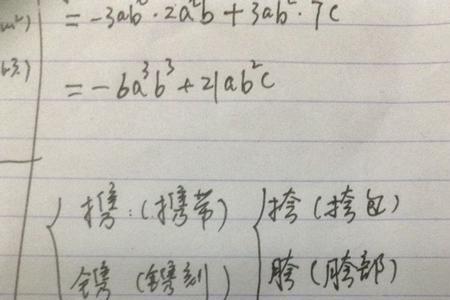 = -3ab²·2a²b + 3ab²·7c
= -6a³b³ + 21ab²c
携:(携带) 挎(挎包)
镌(镌刻) 胯(胯部)